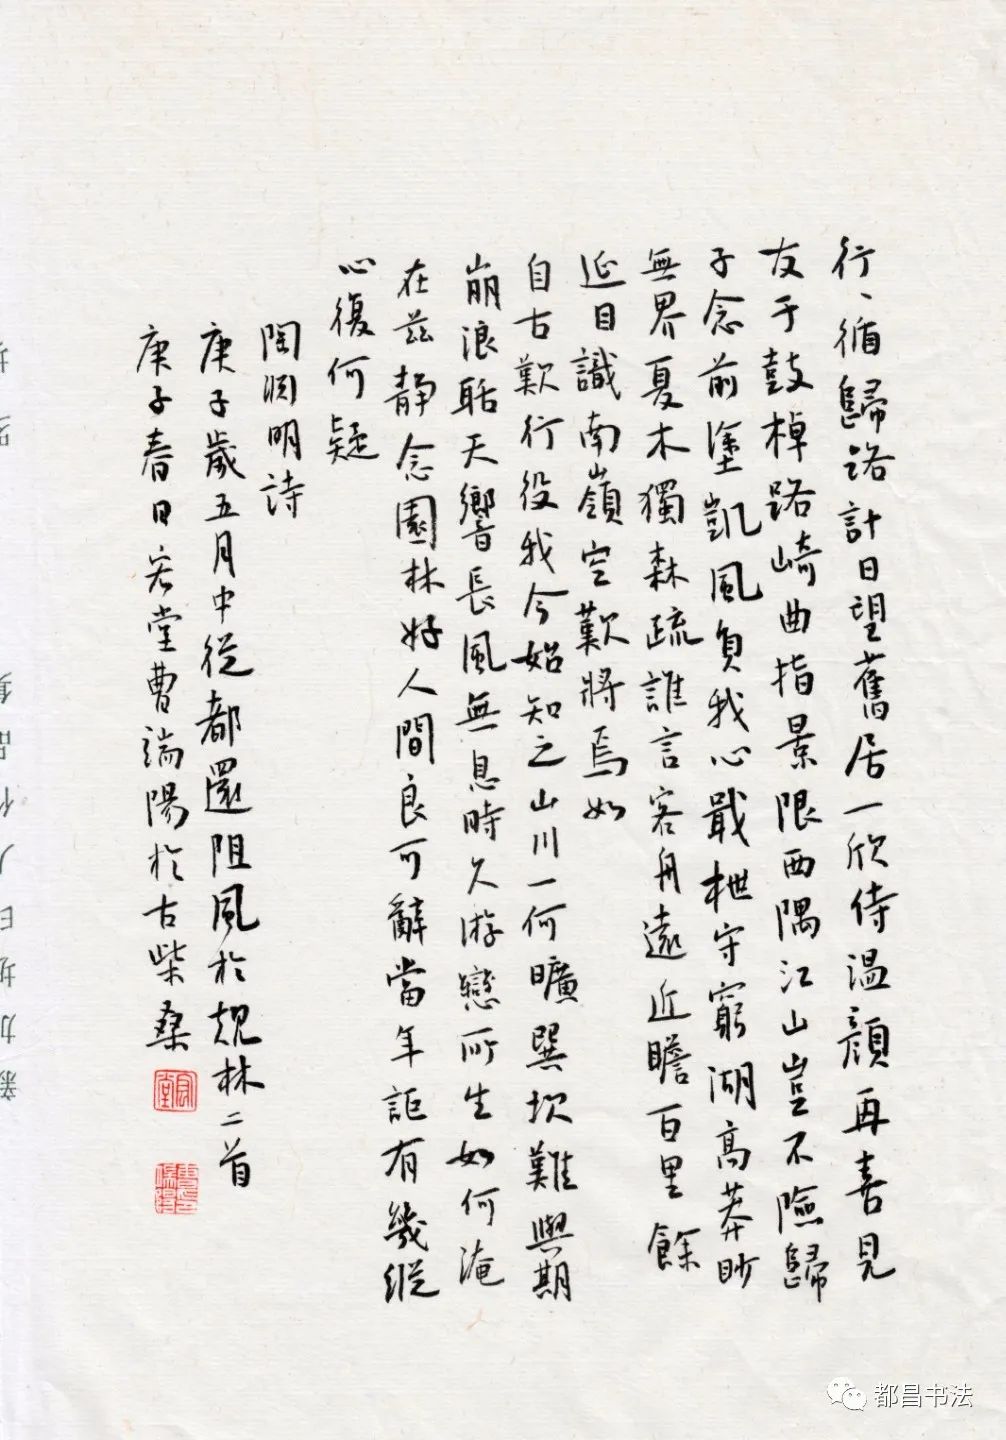 行、循歸路計日望舊居一欣侍温顔再喜見
友于鼓棹路崎曲指景限西隅江山豈不險歸
子念前塗凱風負我心戢枻守窮湖高莽眇
無界夏木獨森疏誰言客舟遠近瞻百里餘
延目識南嶺空歎將焉如
自古歎行役我今始知之山川一何曠巽坎難與期
崩浪聒天響長風無息時久游戀所生如何淹
在兹靜念園林好人間良可辭當年詎有幾縱
心復何疑
陶淵明詩
庚子歲五月中從都還阻風於規林二首
庚子春日宏堂曹端陽於古柴桑
都昌书法